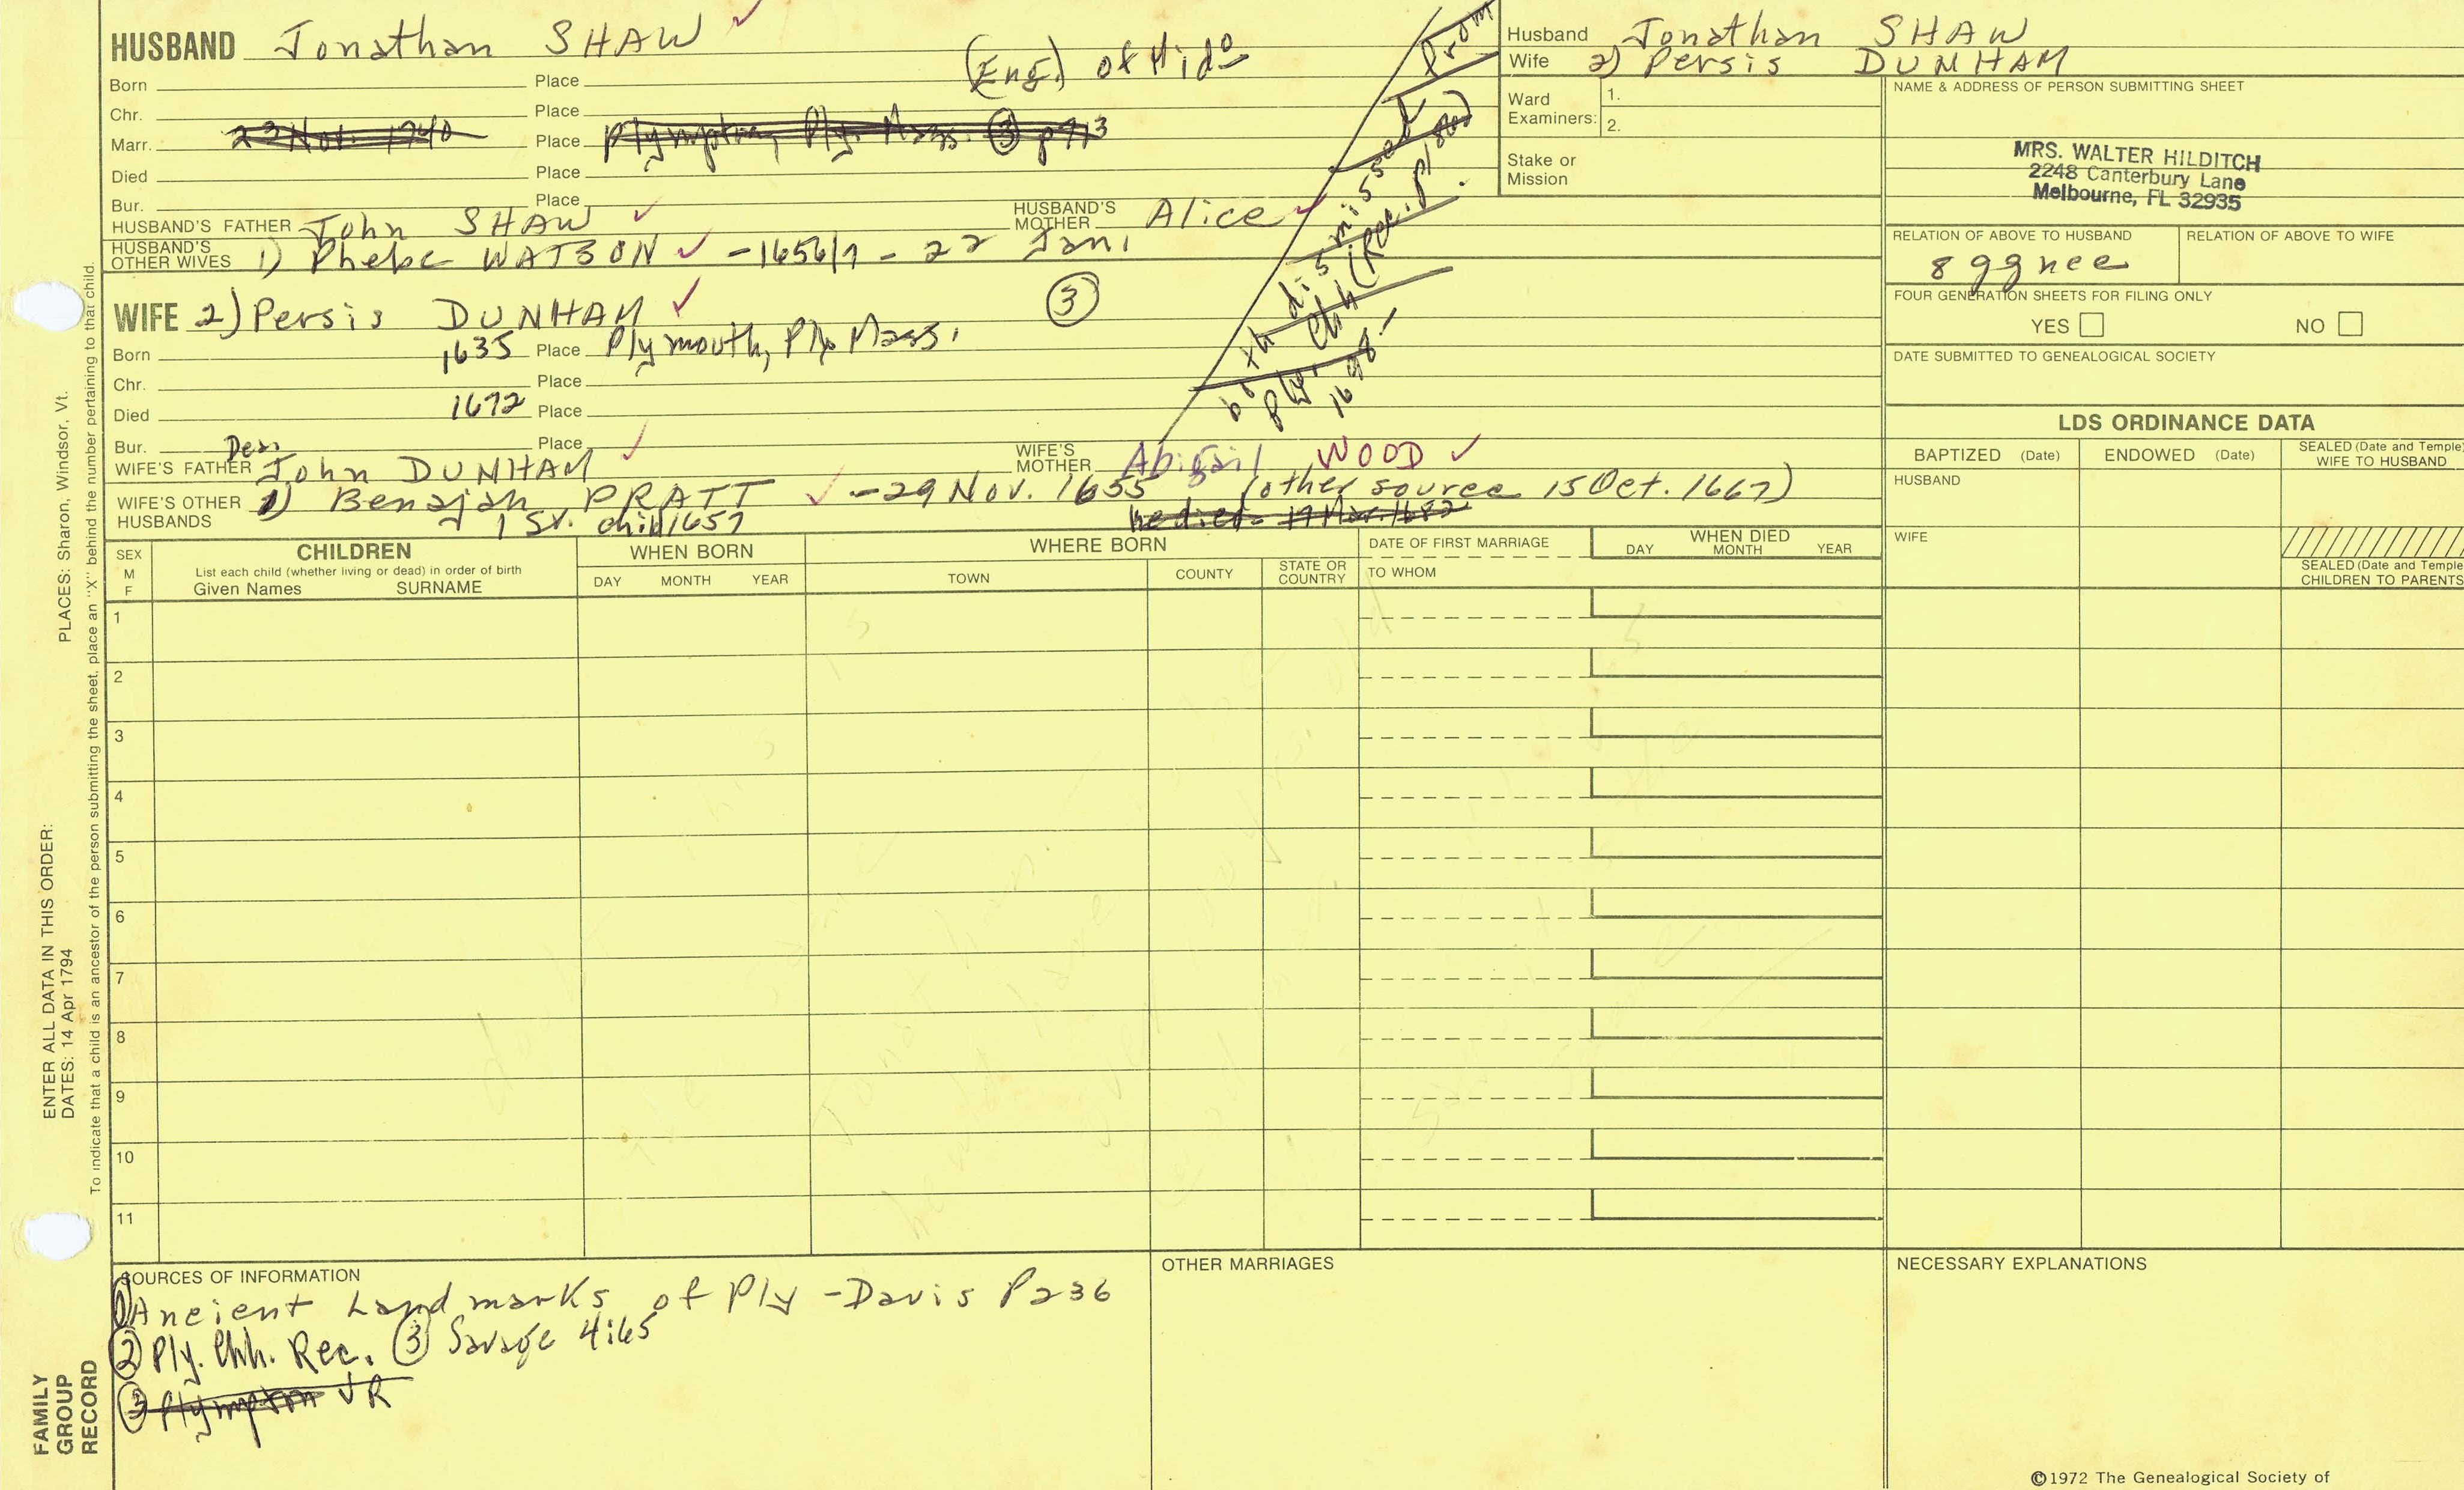 HUSBAND Jonathan SHAW (Eng) of Mid
Born Place
Chr. Place
Marr. 23 Nov. 1740 Place Plympton, Ply. Mass. ③ p413
Died Place
Bur. Place
HUSBAND'S FATHER John SHAW HUSBAND'S MOTHER Alice
HUSBAND'S OTHER WIVES 1) Phebe WATSON - 1656/7 - 22 Jan.
WIFE 2) Persis DUNHAM ③
Born 1635 Place Plymouth, Ply. Mass.
Chr. Place
Died 1672 Place
Bur. Place
WIFE'S FATHER Dea. John DUNHAM WIFE'S MOTHER Abigail WOOD
WIFE'S OTHER HUSBANDS 1) Benajah PRATT - 29 Nov. 1655 (other source 15 Oct. 1667)
1 child 1657 he died 17 Mar. 1682
both dismissed from
Ply. Chh (Rec.
1698-
Husband Jonathan SHAW
Wife 2) Persis DUNHAM
Ward Examiners: 1.
2.
Stake or Mission
NAME & ADDRESS OF PERSON SUBMITTING SHEET
MRS. WALTER HILDITCH
2248 Canterbury Lane
Melbourne, FL 32935
RELATION OF ABOVE TO HUSBAND RELATION OF ABOVE TO WIFE
8 ggnee
FOUR GENERATION SHEETS FOR FILING ONLY
YES NO
DATE SUBMITTED TO GENEALOGICAL SOCIETY
LDS ORDINANCE DATA
BAPTIZED (Date) ENDOWED (Date) SEALED (Date and Temple) WIFE TO HUSBAND
HUSBAND
WIFE
SEALED (Date and Temple CHILDREN TO PARENTS
SEX M F CHILDREN WHEN BORN WHERE BORN DATE OF FIRST MARRIAGE WHEN DIED
List each child (whether living or dead) in order of birth
Given Names SURNAME DAY MONTH YEAR TOWN COUNTY STATE OR COUNTRY TO WHOM DAY MONTH YEAR
1
2
3
4
5
6
7
8
9
10
11
SOURCES OF INFORMATION OTHER MARRIAGES NECESSARY EXPLANATIONS
① Ancient Landmarks of Ply - Davis P236
② Ply. Chh. Rec. ③ Savage 4:65
③ Plympton VR
©1972 The Genealogical Society of
PLACES: Sharon, Windsor, Vt.
ENTER ALL DATA IN THIS ORDER:
DATES: 14 Apr 1794
To indicate that a child is an ancestor of the person submitting the sheet, place an "X" behind the number pertaining to that child.
FAMILY
GROUP
RECORD